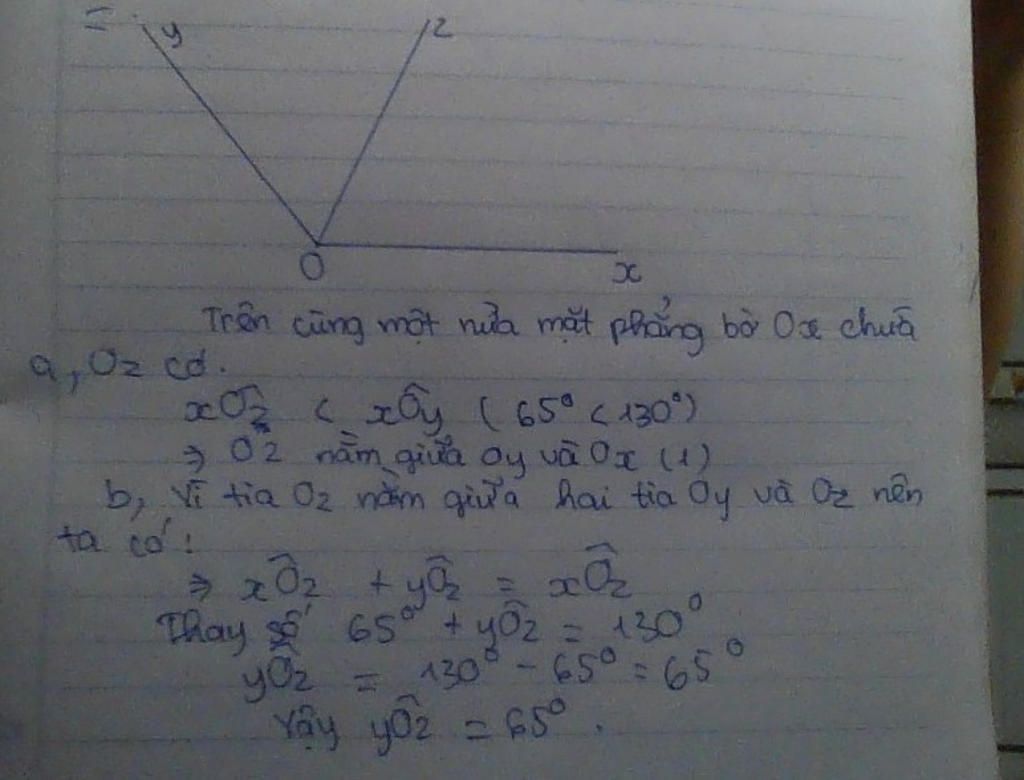 y z
O x
Trên cùng một nửa mặt phẳng bờ Ox chứa
a, Oz có.
xÔz < xÔy (65° < 130°)
⇒ Oz nằm giữa Oy và Ox (1)
b, Vì tia Oz nằm giữa hai tia Oy và Oz nên
ta có:
⇒ xÔz + yÔz = xÔz
Thay số 65° + yÔz = 130°
yÔz = 130° - 65° = 65°
Vậy yÔz = 65°.